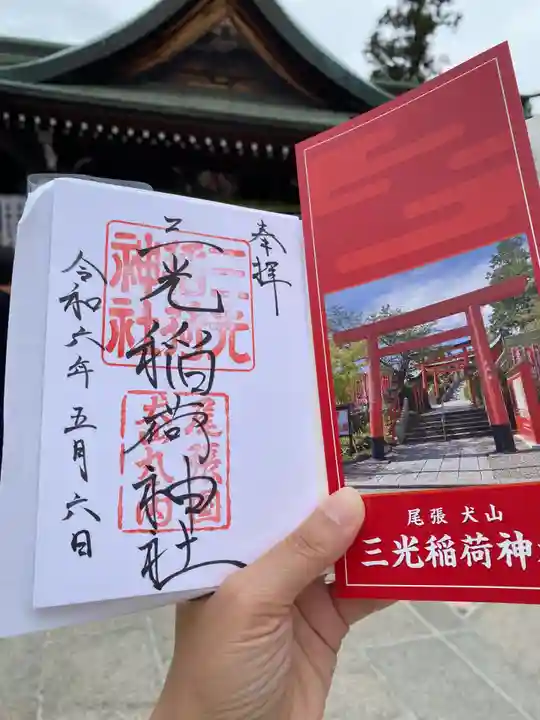 奉拝
三光稲荷神社
令和六年五月六日
三光稲荷神社
尾張 犬山
三光稲荷神